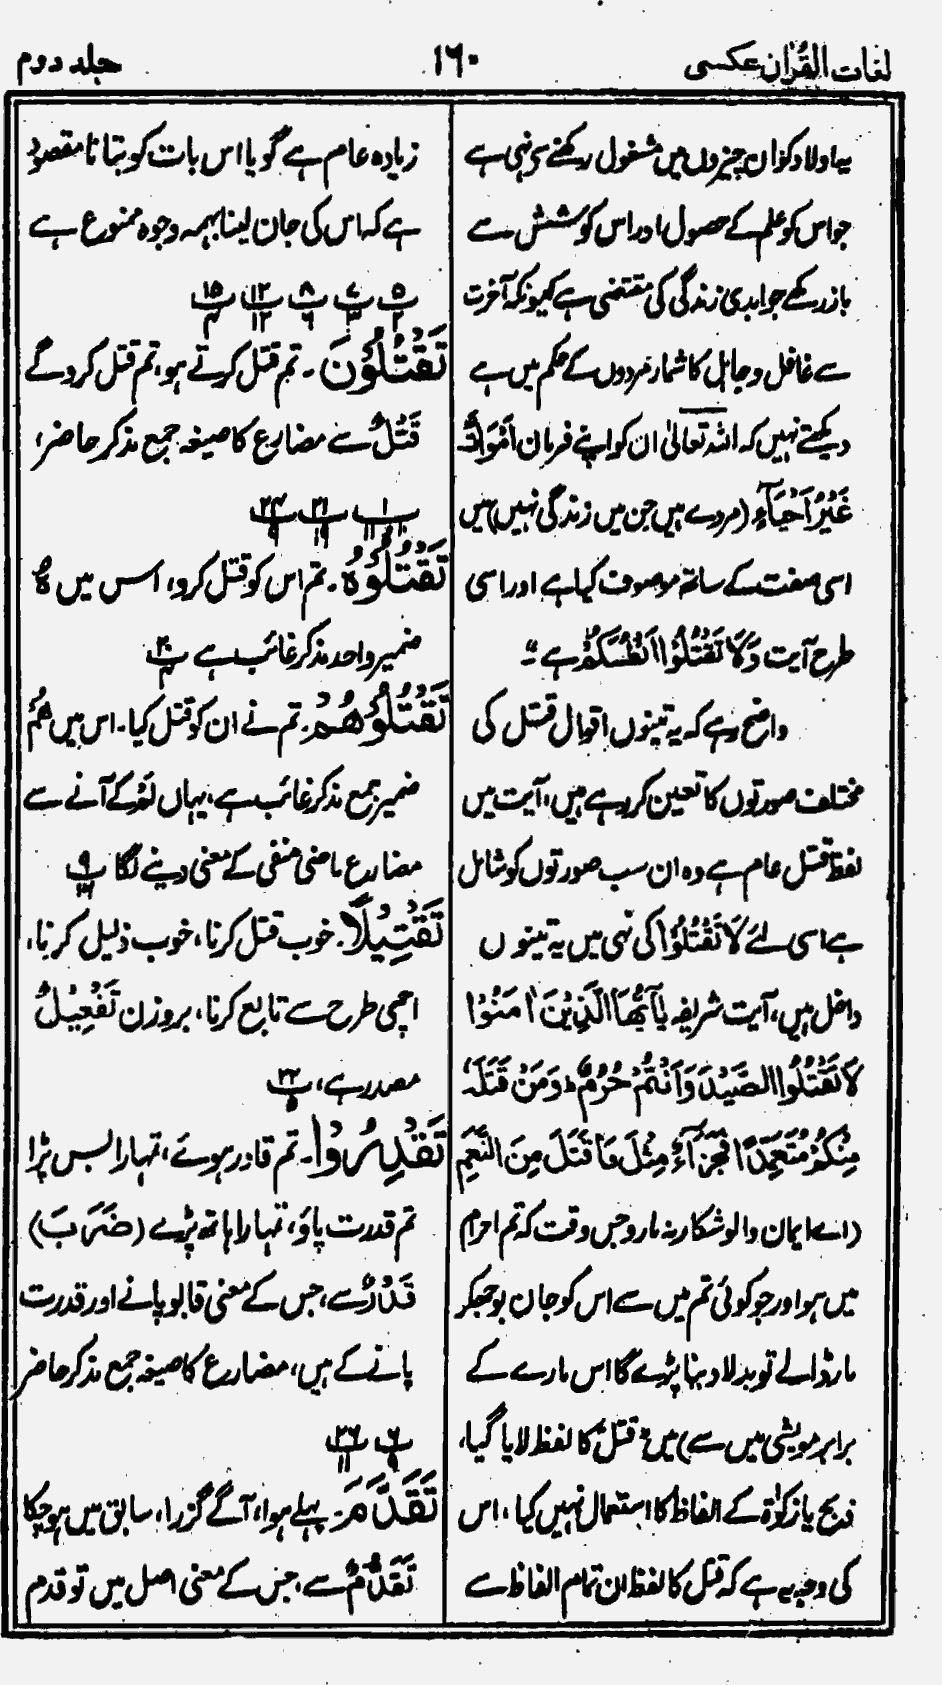 لغات القرآن عکسی
۱۶۰
جلد دوم
یہ اولاد کو ان چیزوں میں مشغول رکھنے سے نہی ہے
جو اس کو علم کے حصول اور اس کوشش سے
باز رکھے جو ابدی زندگی کی مقتضی ہے کیونکہ آخرت
سے غافل و جاہل کا شمار مردوں کے حکم میں ہے
دیکھتے نہیں کہ اللہ تعالیٰ ان کو اپنے فرمان اَمْوَاتٌ
غَیْرُ اَحْیَآءٍ (مردے ہیں جن میں زندگی نہیں) میں
اسی صفت کے ساتھ موصوف کیا ہے اور اسی
طرح آیت وَلَا تَقْتُلُوْا اَنْفُسَكُمْ ہے "
واضح رہے کہ یہ تینوں اقوال قتل کی
مختلف صورتوں کا تعین کر رہے ہیں، آیت میں
لفظ قتل عام ہے وہ ان سب صورتوں کو شامل
ہے اسی لئے لَا تَقْتُلُوْا کی نہی میں یہ تینوں
داخل ہیں، آیت شریفہ یٰۤاَیُّهَا الَّذِیْنَ اٰمَنُوْا
لَا تَقْتُلُوا الصَّیْدَ وَاَنْتُمْ حُرُمٌ ؕ وَمَنْ قَتَلَهٗ
مِنْكُمْ مُّتَعَمِّدًا فَجَزَآءٌ مِّثْلُ مَا قَتَلَ مِنَ النَّعَمِ
(اے ایمان والو شکار نہ مارو جس وقت کہ تم احرام
میں ہو اور جو کوئی تم میں سے اس کو جان بوجھکر
مار ڈالے تو بدلا دینا پڑے گا اس مارے کے
برابر مویشی میں سے) میں قتل کا لفظ لایا گیا،
ذبح یا زکوٰۃ کے الفاظ کا استعمال نہیں کیا، اس
کی وجہ یہ ہے کہ قتل کا لفظ ان تمام الفاظ سے
زیادہ عام ہے گویا اس بات کو بتانا مقصود
ہے کہ اس کی جان لینا بہمہ وجوہ ممنوع ہے
تَقْتُلُوْنَ۔ تم قتل کرتے ہو، تم قتل کرو گے
قَتْلٌ سے مضارع کا صیغہ جمع مذکر حاضر،
تَقْتُلُوْهُ۔ تم اس کو قتل کرو، اس میں هُ
ضمیر واحد مذکر غائب ہے
تَقْتُلُوْهُمْ۔ تم نے ان کو قتل کیا۔ اس میں هُمْ
ضمیر جمع مذکر غائب ہے، یہاں لَمْ کے آنے سے
مضارع ماضی منفی کے معنی دینے لگا
تَقْتِیْلًا۔ خوب قتل کرنا، خوب ذلیل کرنا،
اچھی طرح سے تابع کرنا، بروزن تَفْعِیْلٌ
مصدر ہے،
تَقْدِرُوْا۔ تم قادر ہوئے، تمہارا بس پڑا
تم قدرت پاؤ، تمہارا ہاتھ پڑے (ضَرَبَ)
قَدْرٌ سے، جس کے معنی قابو پانے اور قدرت
پانے کے ہیں، مضارع کا صیغہ جمع مذکر حاضر
تَقَدَّمَ۔ پہلے ہوا، آگے گزرا، سابق میں ہو چکا
تَقَدُّمٌ سے، جس کے معنی اصل میں تو قدم